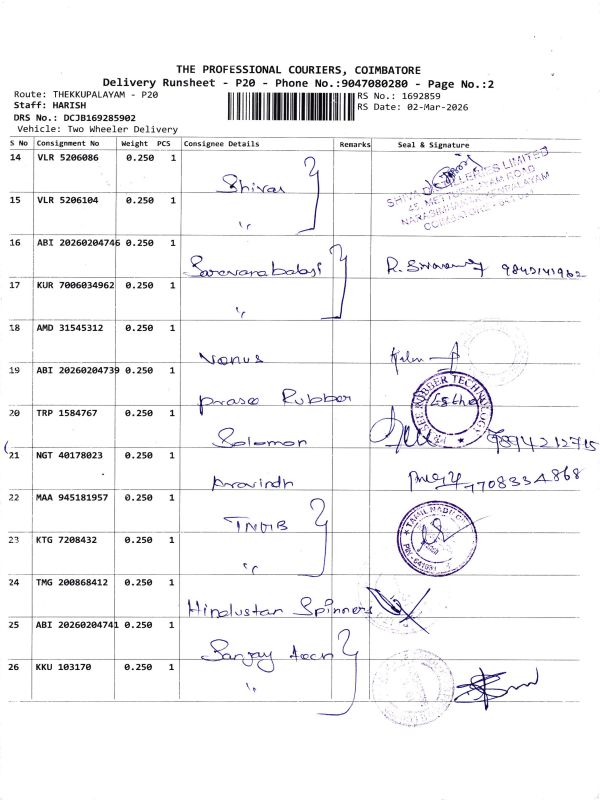 THE PROFESSIONAL COURIERS, COIMBATORE
Delivery Runsheet - P20 - Phone No.:9047080280 - Page No.:2
Route: THEKKUPALAYAM - P20
RS No.: 1692859
Staff: HARISH
RS Date: 02-Mar-2026
DRS No.: DCJB169285902
Vehicle: Two Wheeler Delivery
S No Consignment No Weight PCS Consignee Details Remarks Seal & Signature
14 VLR 5206086 0.250 1
15 VLR 5206104 0.250 1
16 ABI 20260204746 0.250 1 Saravanabalaji 9842141962
17 KUR 7006034962 0.250 1
18 AMD 31545312 0.250 1 Venus
19 ABI 20260204739 0.250 1 prasee Rubber
20 TRP 1584767 0.250 1 Solomon 9894212715
21 NGT 40178023 0.250 1 pravindh 7708334868
22 MAA 945181957 0.250 1 TNMB
23 KTG 7208432 0.250 1
24 TMG 200868412 0.250 1 Hindustan Spinners
25 ABI 20260204741 0.250 1 Sanjay
26 KKU 103170 0.250 1